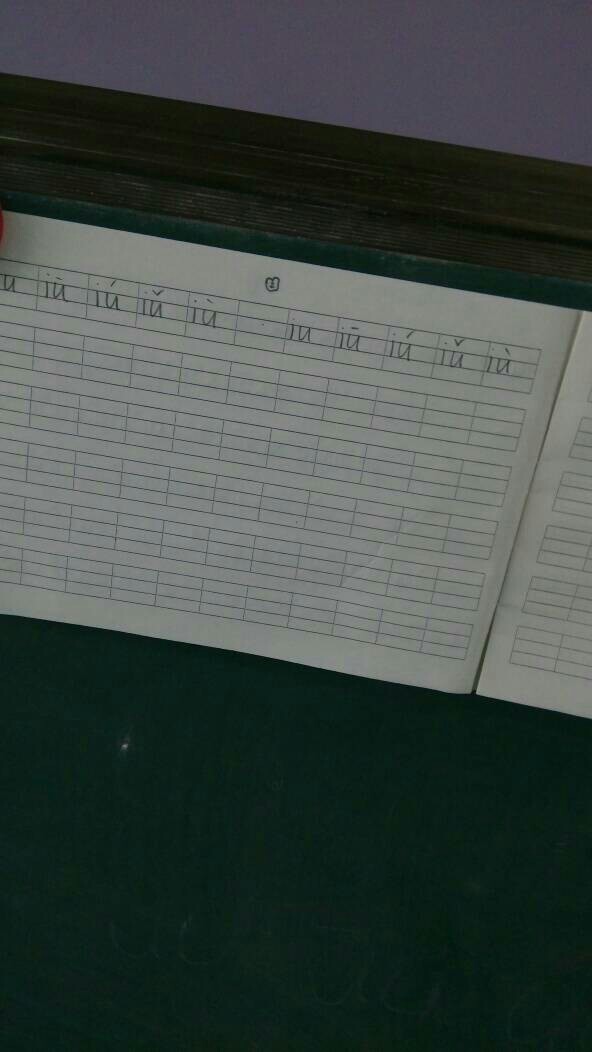 iū iú iǔ iù iu iū iú iǔ iù